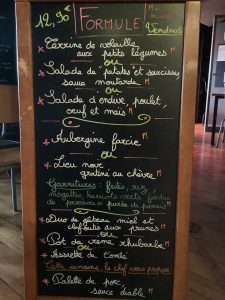 12,90€
FORMULE
Vendredi
* Terrine de volaille
aux petits légumes M
ou
* Salade de patates et saucisses
sauce moutarde M
ou
* Salade d'endive, poulet,
oeuf et maïs M
* Aubergine farcie M
ou
* Lieu noir
gratiné au chèvre M
Garnitures : frites, riz,
mogettes, haricots verts,
purée de panais
* Duo de gâteau miel et
clafoutis aux prunes M
ou
* Pot de crème rhubarbe M
ou
* Assiette de Comté
Cette semaine, le chef vous propose :
* Palette de porc,
sauce diable M